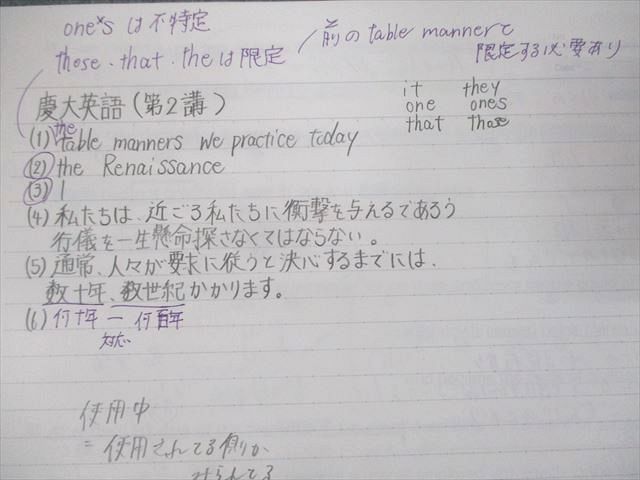 one*s は不特定
those・that・theは限定
前のtable mannerと
限定する必要あり
it they
one ones
that those
慶大英語(第2講)
the
(1) table manners we practice today
(2) the Renaissance
(3) 1
(4) 私たちは、近ごろ私たちに衝撃を与えるであろう
行儀を一生懸命探さなくてはならない。
(5) 通常、人々が要求に従うと決心するまでには、
数十年、数世紀かかります。
(6) 何十年 ー 何百年
対応
使用中
=使用されてる側か
みられてる